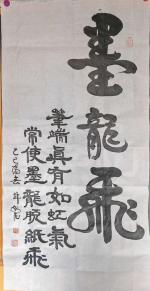 墨龍飛
筆端真有如虹氣
常使墨龍破紙飛